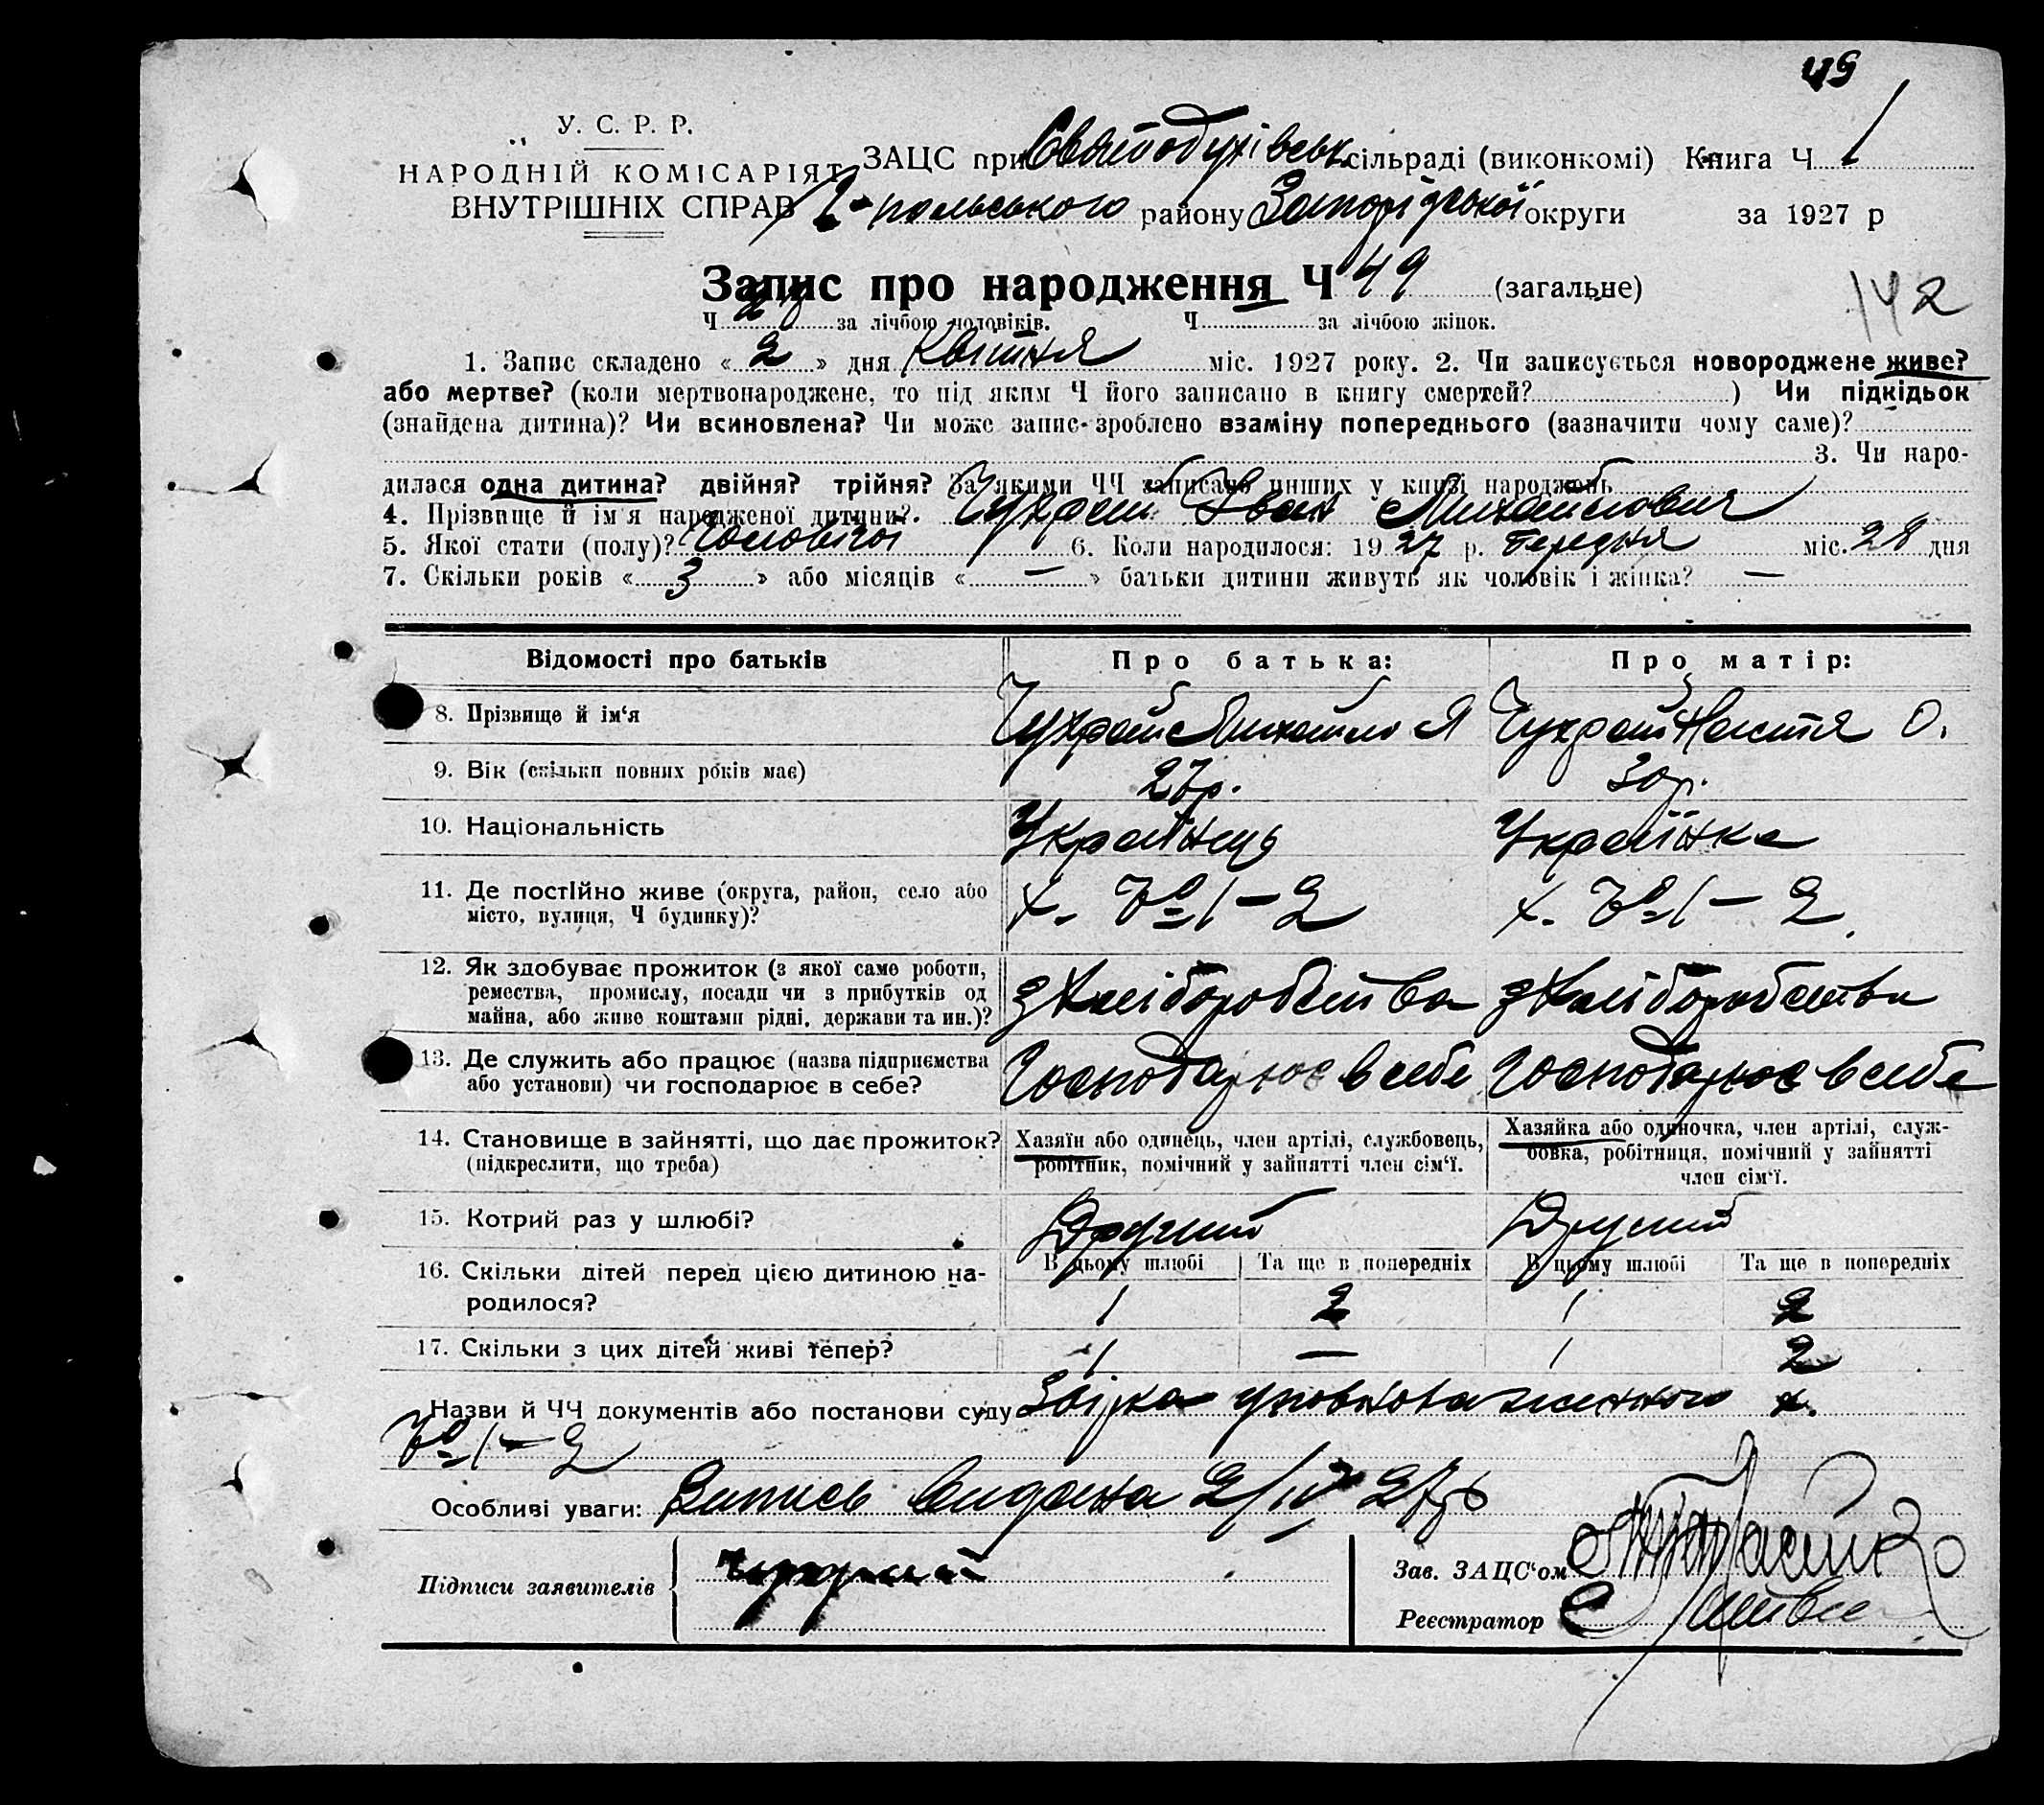 49
У. С. Р. Р.
НАРОДНІЙ КОМІСАРІЯТ
ВНУТРІШНІХ СПРАВ
ЗАЦС при Святодухівськ сільраді (виконкомі) Книга Ч 1
польського району Запорізської округи за 1927 р
Запис про народження Ч 49 (загальне)
142
Ч за лічбою чоловіків. Ч за лічбою жінок.
1. Запис складено «2» дня Квітня міс. 1927 року. 2. Чи записується новороджене живе?
або мертве? (коли мертвонароджене, то під яким Ч його записано в книгу смертей? ) Чи підкідьок
(знайдена дитина)? Чи всиновлена? Чи може запис зроблено взаміну попереднього (зазначити чому саме)?
3. Чи наро-
дилася одна дитина? двійня? трійня? За якими ЧЧ записано инших у книзі народжень
4. Прізвище й ім'я народженої дитини? Чухрай Іван Михайлович
5. Якої стати (полу)? Чоловічої 6. Коли народилося: 1927 р. Березня міс. 28 дня
7. Скільки років «3» або місяців «—» батьки дитини живуть як чоловік і жінка? —
Відомості про батьків Про батька: Про матір:
8. Прізвище й ім'я Чухрай Михайло Я Чухрай Настя О.
9. Вік (скільки повних років має) 27р. 30р.
10. Національність Українець Українка
11. Де постійно живе (округа, район, село або
місто, вулиця, Ч будинку)? х. № 1–2 х. № 1–2.
12. Як здобуває прожиток (з якої саме роботи,
ремества, промислу, посади чи з прибутків од
майна, або живе коштами рідні, держави та ин.)? з Хліборобства з Хліборобства
13. Де служить або працює (назва підприємства
або установи) чи господарює в себе? Господарює в себе Господарює в себе
14. Становище в зайнятті, що дає прожиток?
(підкреслити, що треба)
Хазяїн або одинець, член артілі, службовець,
робітник, помічний у зайнятті член сім'ї.
Хазяйка або одиночка, член артілі, служ-
бовка, робітниця, помічний у зайнятті
член сім'ї.
15. Котрий раз у шлюбі? Другий Другий
В цьому шлюбі Та ще в попередніх В цьому шлюбі Та ще в попередніх
16. Скільки дітей перед цією дитиною на-
родилося? 1 2 1 2
17. Скільки з цих дітей живі тепер? 1 — 1 2
Назви й ЧЧ документів або постанови суду уповноваженного х.
№ 1–2
Особливі уваги: Випись видана 2/IV 27р
Підписи заявителів Чухрай
Зав. ЗАЦС'ом
Реєстратор